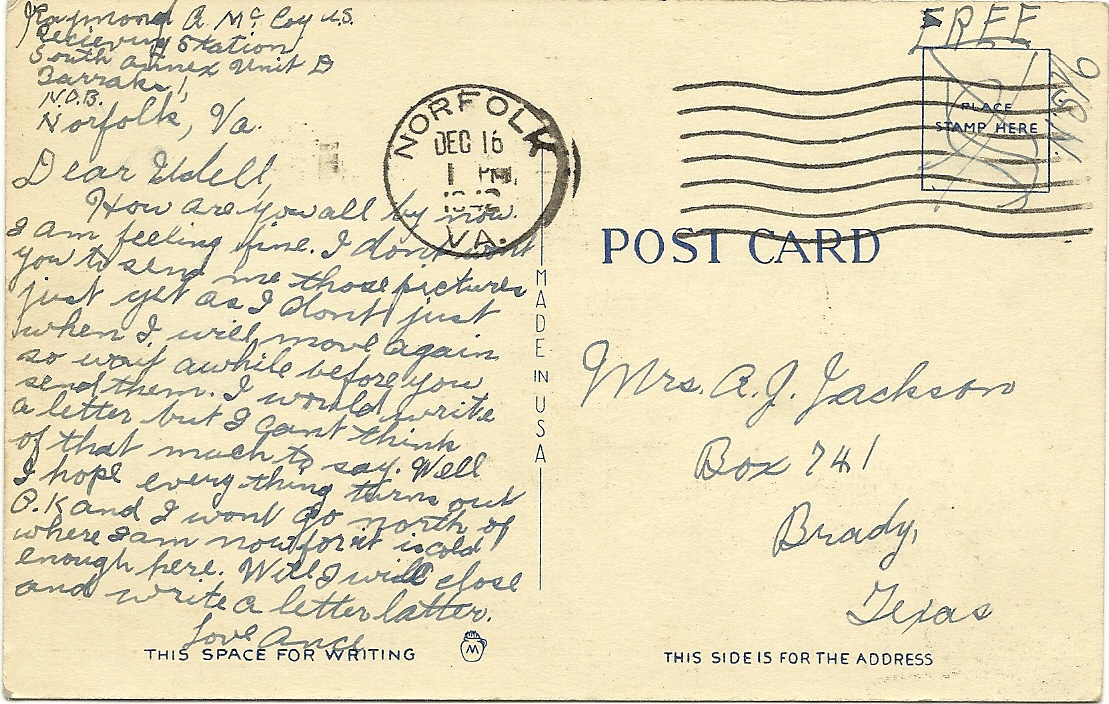 Raymond A. McCoy U.S.
Recieving Station
South Annex Unit D
Barraks 1,
N.O.B.
Norfolk, Va.
Dear Udell
How are you all by now.
I am feeling fine. I dont want
you to send me those pictures
just yet as I dont just
when I will move again
so wait awhile before you
send them. I would write
a letter but I cant think
of that much to say. Well
I hope every thing turns out
O.K and I wont go north of
where I am now for it is cold
enough here. Well I will close
and write a letter latter.
Love
THIS SPACE FOR WRITING
M
NORFOLK
DEC 16
1 PM
VA.
MADE IN USA
FREE
PLACE
STAMP HERE
POST CARD
Mrs. A. J. Jackson
Box 741
Brady,
Texas
THIS SIDE IS FOR THE ADDRESS